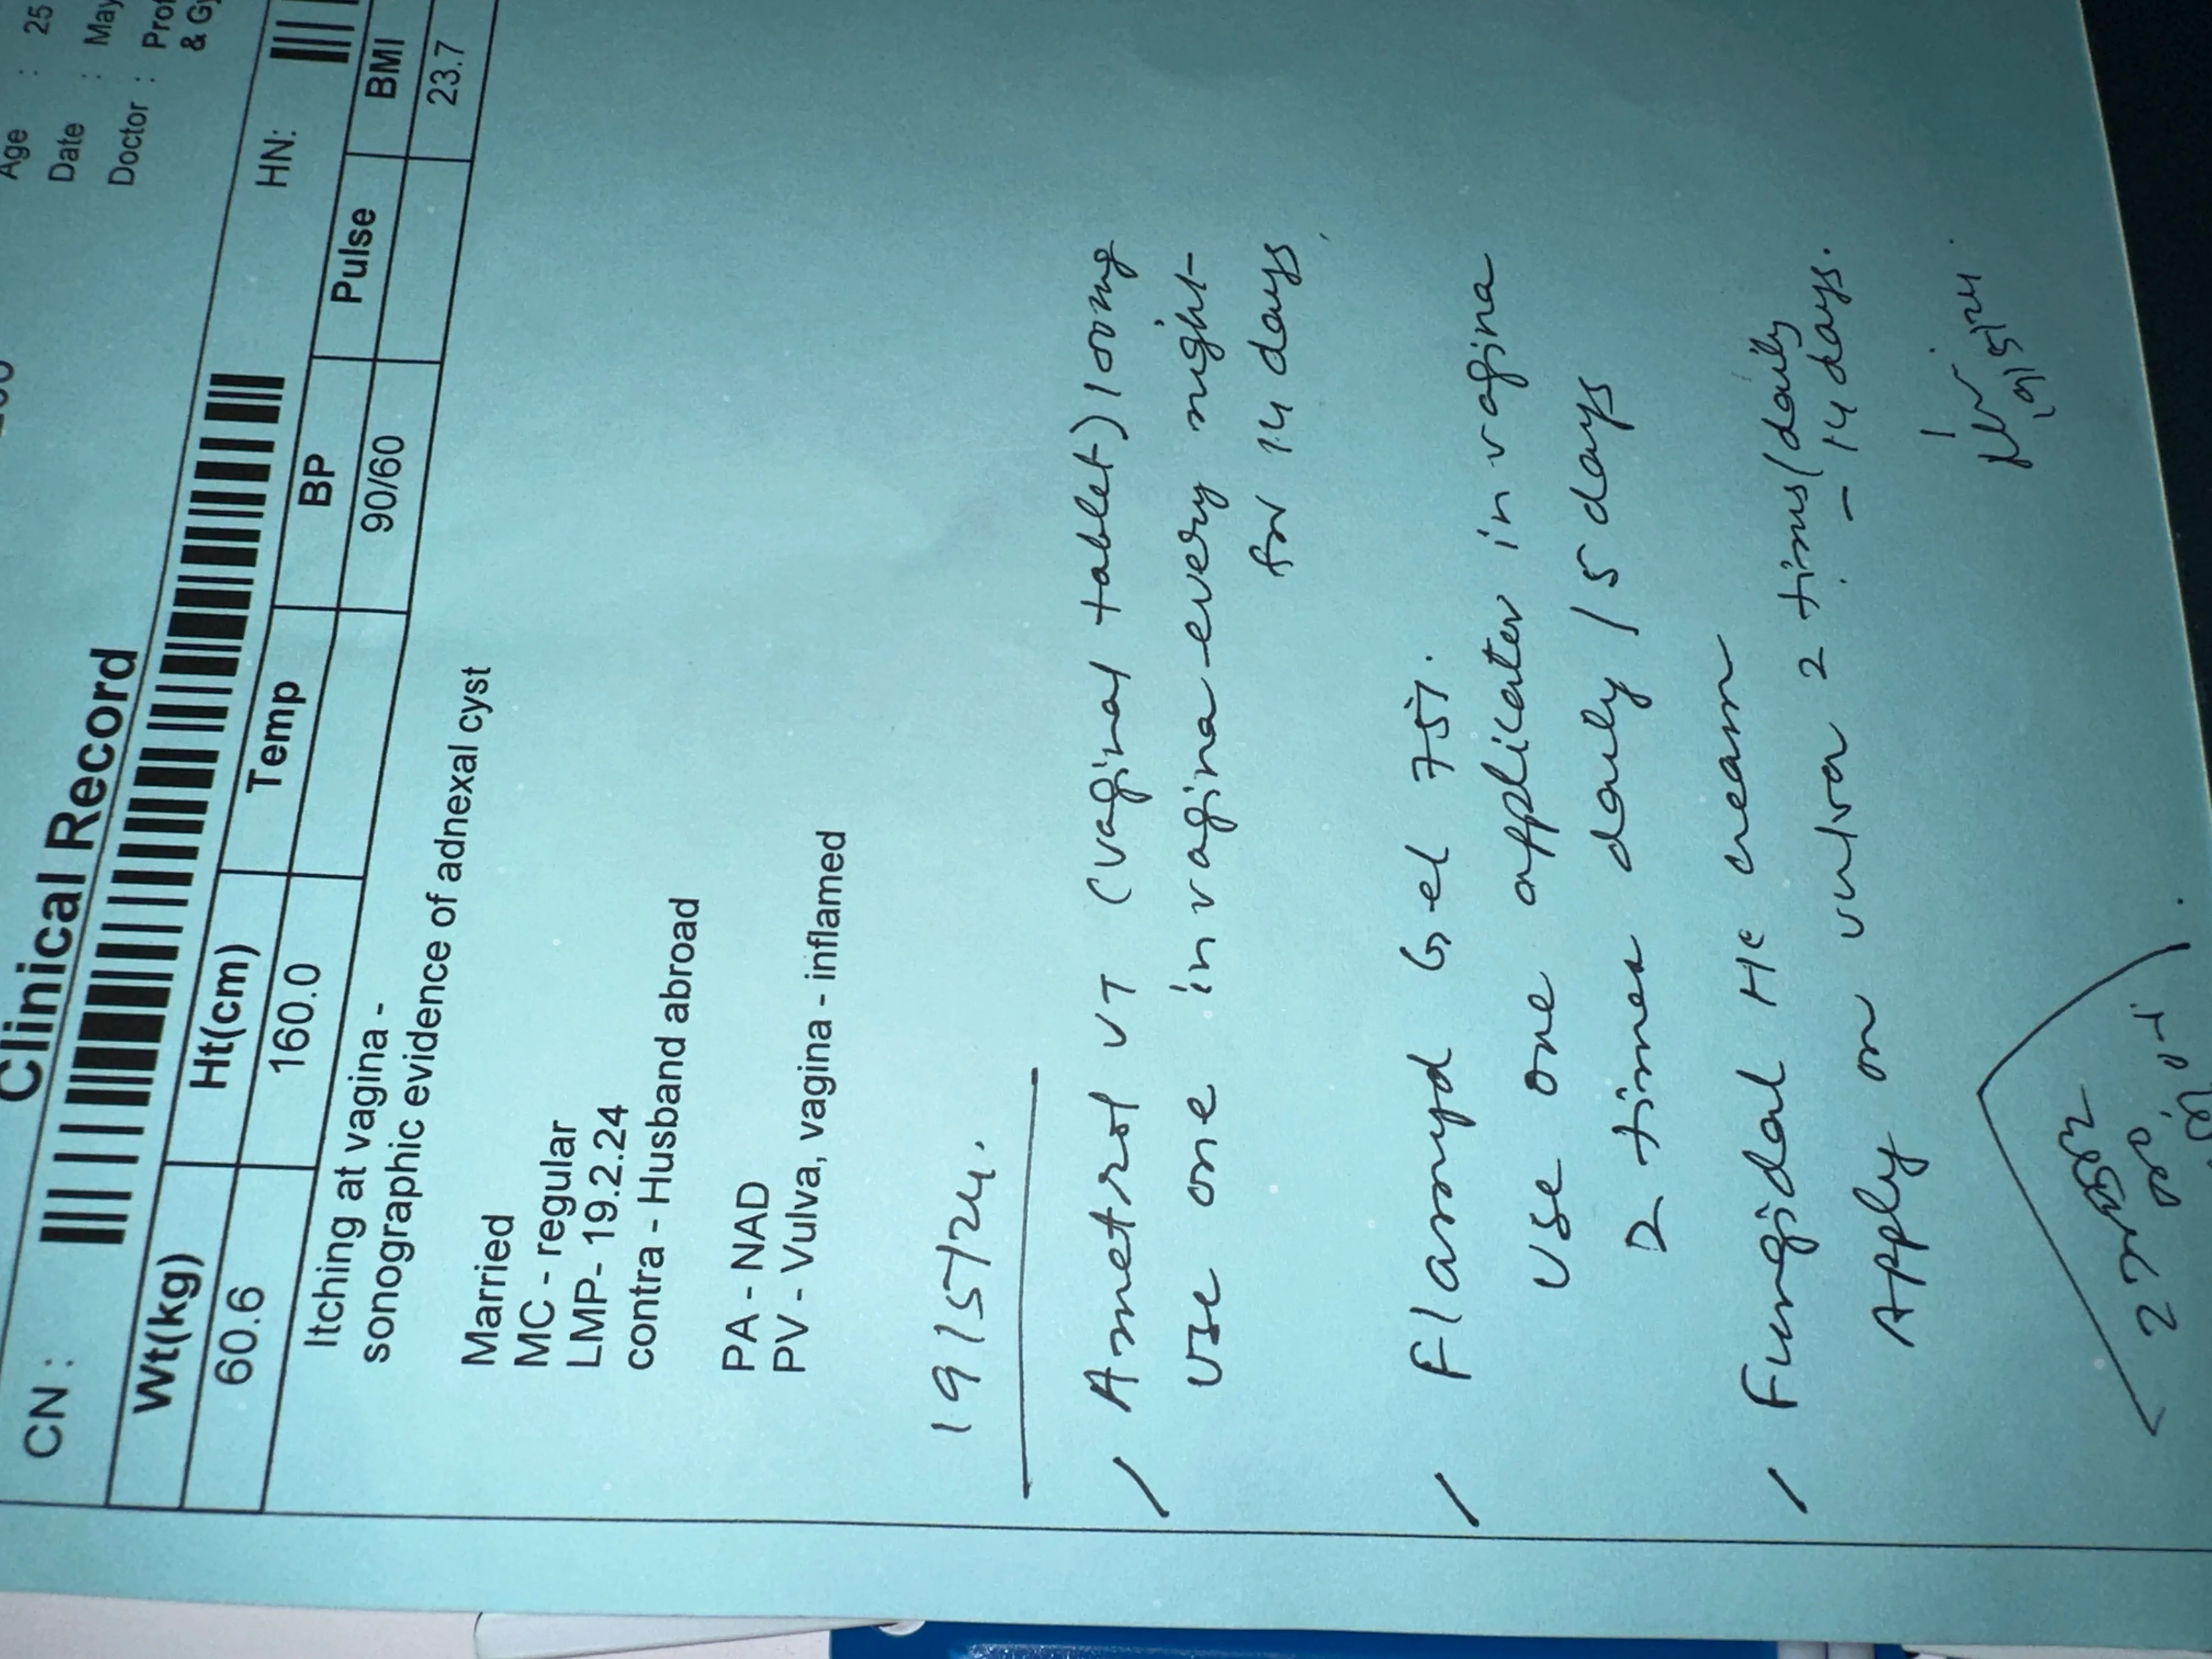 Age : 25
Date : May
Doctor : Prof
& Gy
Clinical Record
CN :
HN:
Wt(kg) Ht(cm) Temp BP Pulse BMI
60.6 160.0 90/60 23.7
Itching at vagina -
sonographic evidence of adnexal cyst
Married
MC - regular
LMP- 19.2.24
contra - Husband abroad
PA - NAD
PV - Vulva, vagina - inflamed
19/5/24.
/ Ametrol VT (vaginal tablet) 100mg
Use one in vagina every night
for 14 days
/ Flamyd Gel 75%.
Use one applicator in vagina
2 times daily / 5 days
/ Fungidal HC cream
Apply on vulva 2 times/daily
- 14 days.
19/5/24